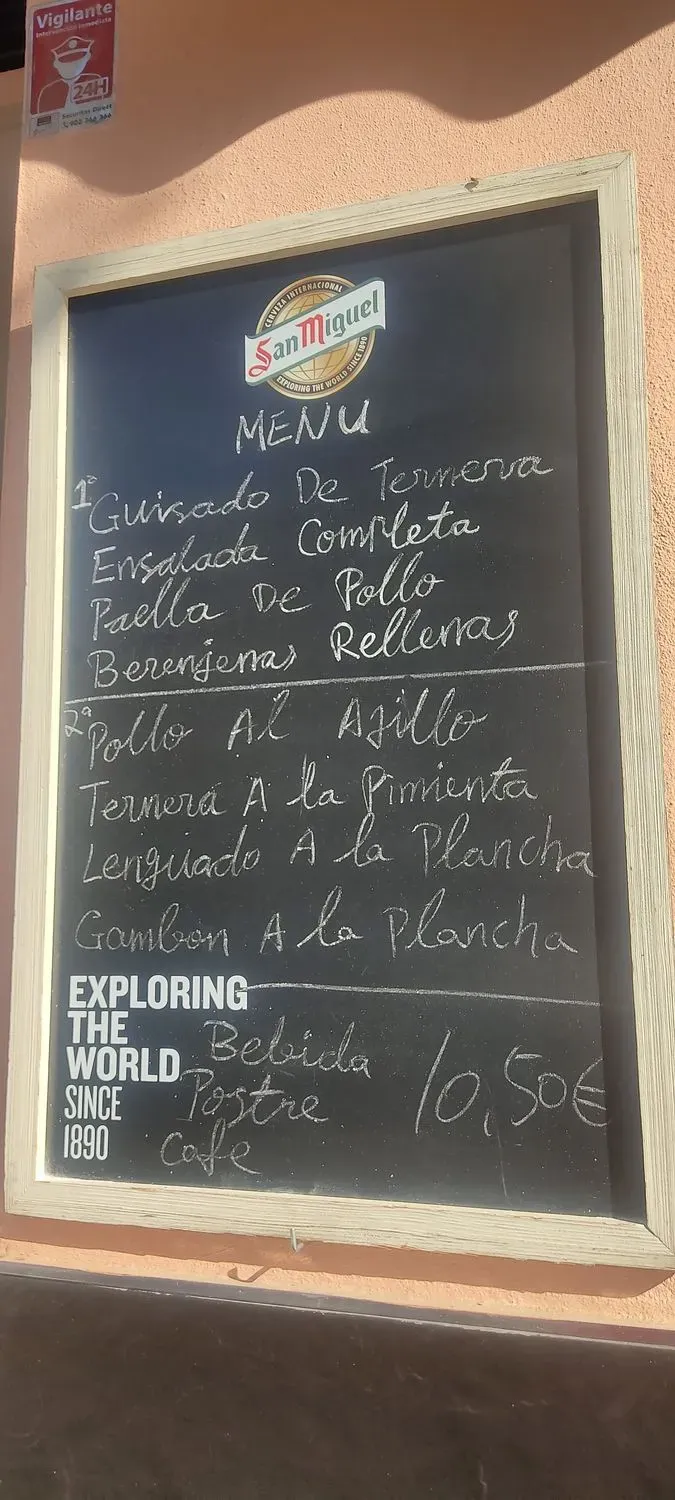 Vigilante
Intervención Inmediata
24H
Securitas Direct
CERVEZA INTERNACIONAL
San Miguel
EXPLORING THE WORLD SINCE 1890
MENU
1º Guisado De Ternera
Ensalada Completa
Paella De Pollo
Berenjenas Rellenas
2º Pollo Al Ajillo
Ternera A la Pimienta
Lenguado A la Plancha
Gambon A la Plancha
EXPLORING
THE
WORLD
SINCE
1890
Bebida
Postre
Cafe
10,50€